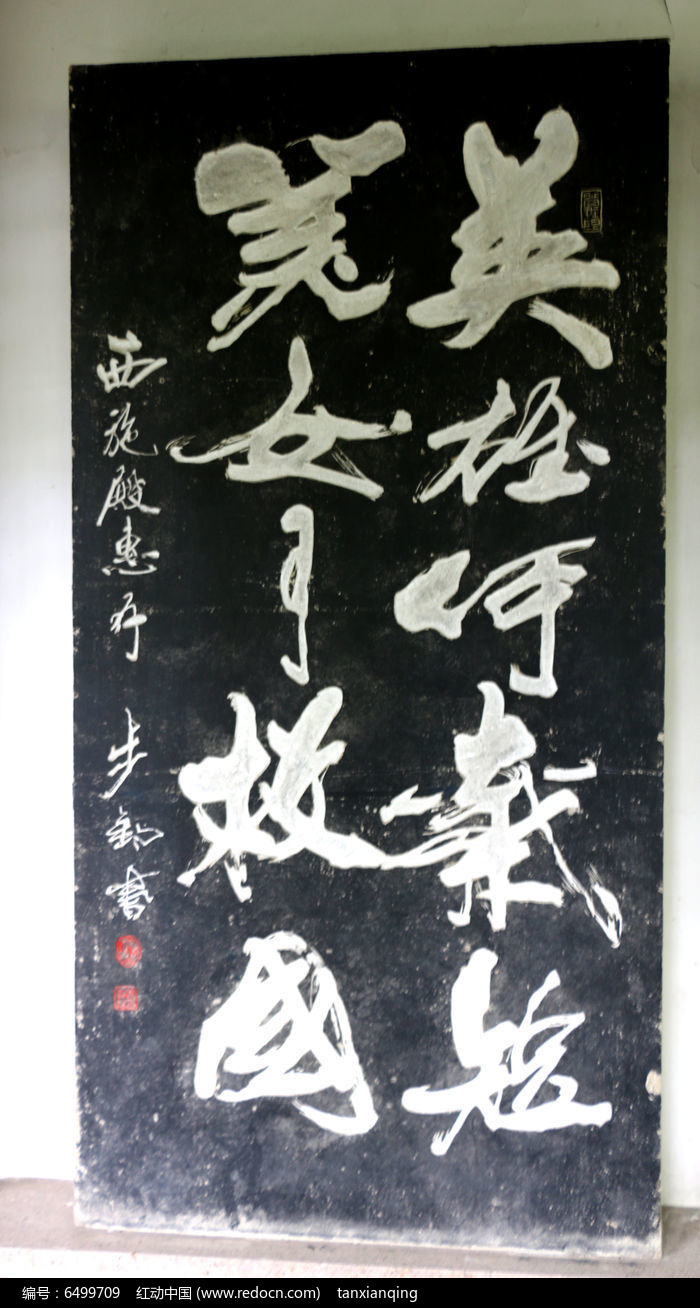 英雄何氣短
美女救國
西施殿惠存 步書
编号：6499709 红动中国 (www.redocn.com) tanxianqing